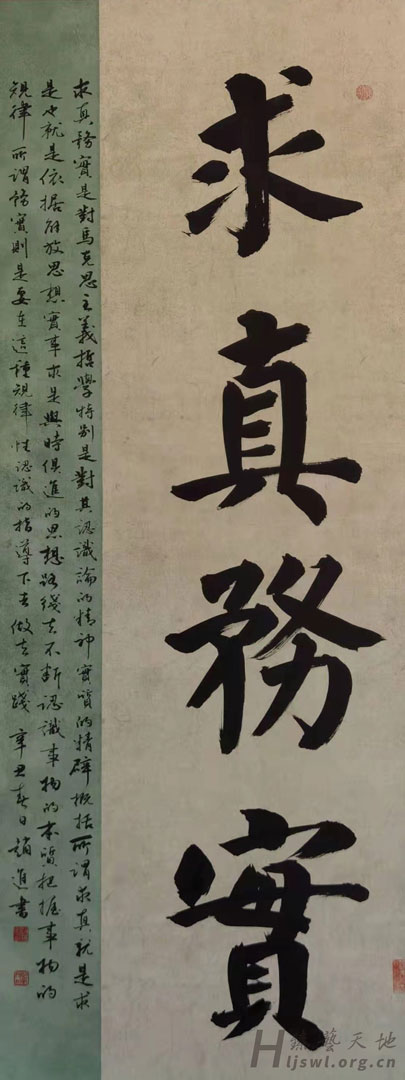 求真務實
求真務實是對馬克思主義哲學特别是對其認識論的精神實質的精辟概括所谓求真就是求
是也就是依据解放思想實事求是與時俱進的思想路綫去不断認識事物的本質把握事物的
規律所谓務實則是要在這種規律性認識的指導下去做去實踐辛丑春日趙進書
藝天地
Hljswl.org.cn